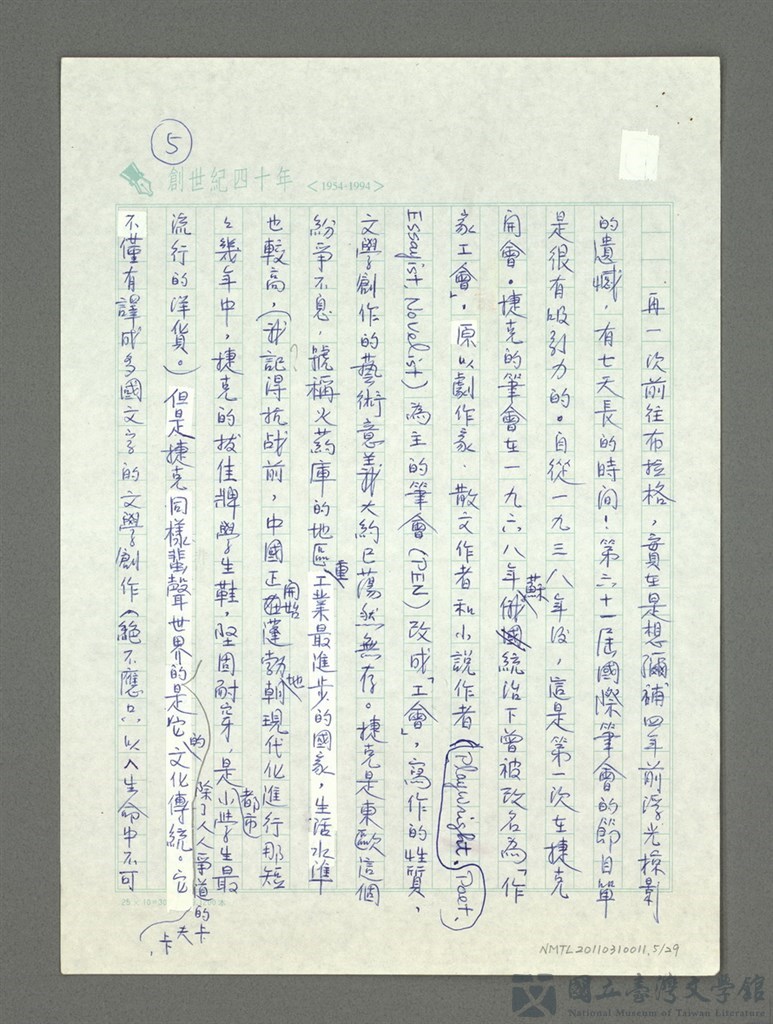 5
創世紀四十年 <1954-1994>
再一次前往布拉格,實在是想彌補四年前浮光掠影
的遺憾,有七天長的時间!第六十一屆國際筆會的節目單
是很有吸引力的。自從一九三八年後,這是第一次在捷克
開會。捷克的筆會在一九六八年蘇俄統治下曾被改名為「作
家工會」。原以劇作家.散文作者和小說作者(Playwright, Poet,
Essayist, Novelist)為主的筆會(PEN)改成「工會」,寫作的性質,
文學創作的藝術意義大約已蕩然無存。捷克是東歐這個
紛爭不息.號稱火葯庫的地區重工業最進步的國家,生活水準
也較高,(我記得抗战前,中國正開始蓬勃地朝現代化進行那短
々幾年中,捷克的拔佳牌學生鞋,堅固耐穿,是都市小學生最
流行的洋貨。)但是捷克同樣蜚聲世界的是它的文化傳統。它
除了人人爭道的卡夫卡,
不僅有譯成多國文字的文學創作(絕不應只以人生命中不可
NMTL20110310011, 5/29
國立臺灣文學館
National Museum of Taiwan Literature